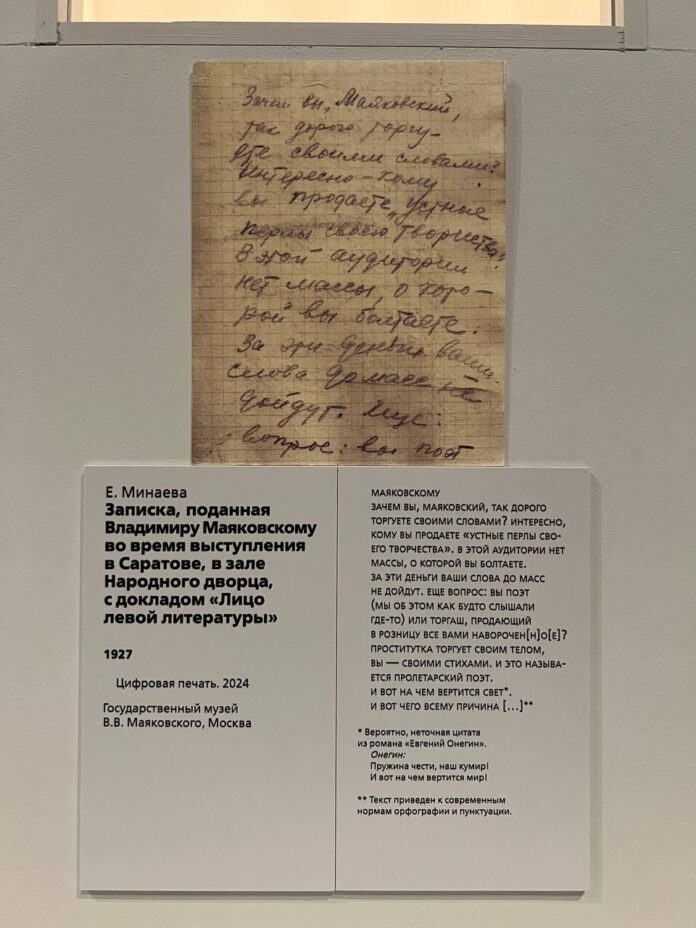 Зачем вы, Маяковский,
так дорого торгу-
ете своими словами?
Интересно – кому
вы продаете „устные
перлы своего творчества“?
В этой аудитории
нет массы, о кото-
рой вы болтаете.
За эти деньги ваши
слова до масс не
дойдут. Еще
вопрос: вы поэт
Е. Минаева
Записка, поданная
Владимиру Маяковскому
во время выступления
в Саратове, в зале
Народного дворца,
с докладом «Лицо
левой литературы»
1927
Цифровая печать. 2024
Государственный музей
В.В. Маяковского, Москва
МАЯКОВСКОМУ
ЗАЧЕМ ВЫ, МАЯКОВСКИЙ, ТАК ДОРОГО
ТОРГУЕТЕ СВОИМИ СЛОВАМИ? ИНТЕРЕСНО,
КОМУ ВЫ ПРОДАЕТЕ «УСТНЫЕ ПЕРЛЫ СВО-
ЕГО ТВОРЧЕСТВА». В ЭТОЙ АУДИТОРИИ НЕТ
МАССЫ, О КОТОРОЙ ВЫ БОЛТАЕТЕ.
ЗА ЭТИ ДЕНЬГИ ВАШИ СЛОВА ДО МАСС
НЕ ДОЙДУТ. ЕЩЕ ВОПРОС: ВЫ ПОЭТ
(МЫ ОБ ЭТОМ КАК БУДТО СЛЫШАЛИ
ГДЕ-ТО) ИЛИ ТОРГАШ, ПРОДАЮЩИЙ
В РОЗНИЦУ ВСЕ ВАМИ НАВОРОЧЕН[Н]О[Е]?
ПРОСТИТУТКА ТОРГУЕТ СВОИМ ТЕЛОМ,
ВЫ — СВОИМИ СТИХАМИ. И ЭТО НАЗЫВА-
ЕТСЯ ПРОЛЕТАРСКИЙ ПОЭТ.
И ВОТ НА ЧЕМ ВЕРТИТСЯ СВЕТ*.
И ВОТ ЧЕГО ВСЕМУ ПРИЧИНА [...]**
* Вероятно, неточная цитата
из романа «Евгений Онегин».
Онегин:
Пружина чести, наш кумир!
И вот на чем вертится мир!
** Текст приведен к современным
нормам орфографии и пунктуации.